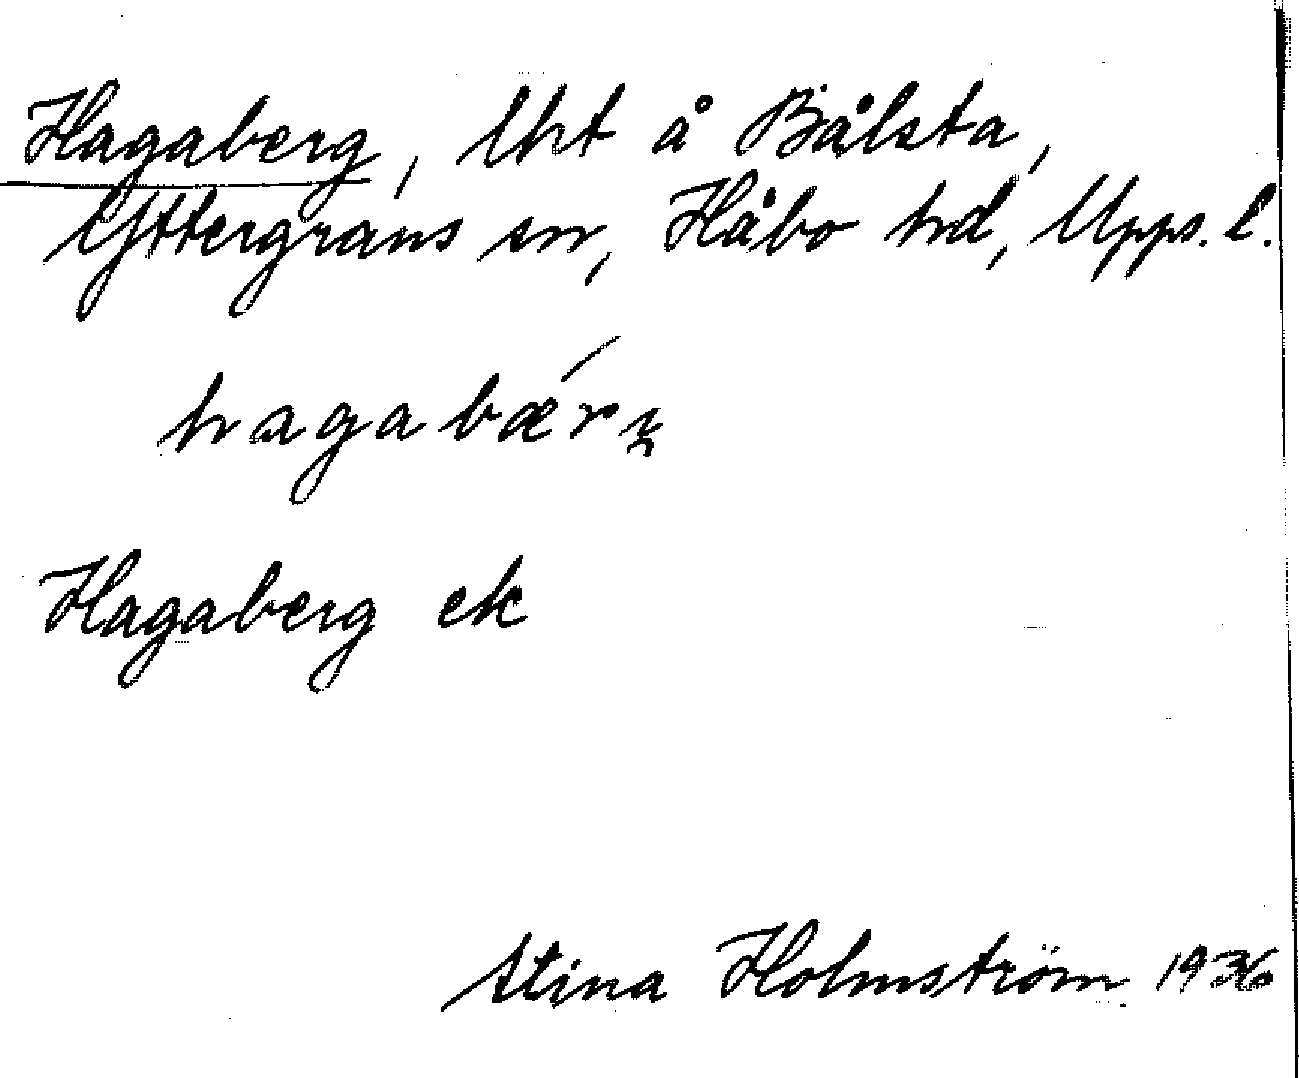 Hagaberg, lht å Bålsta,
Yttergrans sn, Håbo hd, Upps. l.
hagabær
Hagaberg ek
Stina Holmström 1936